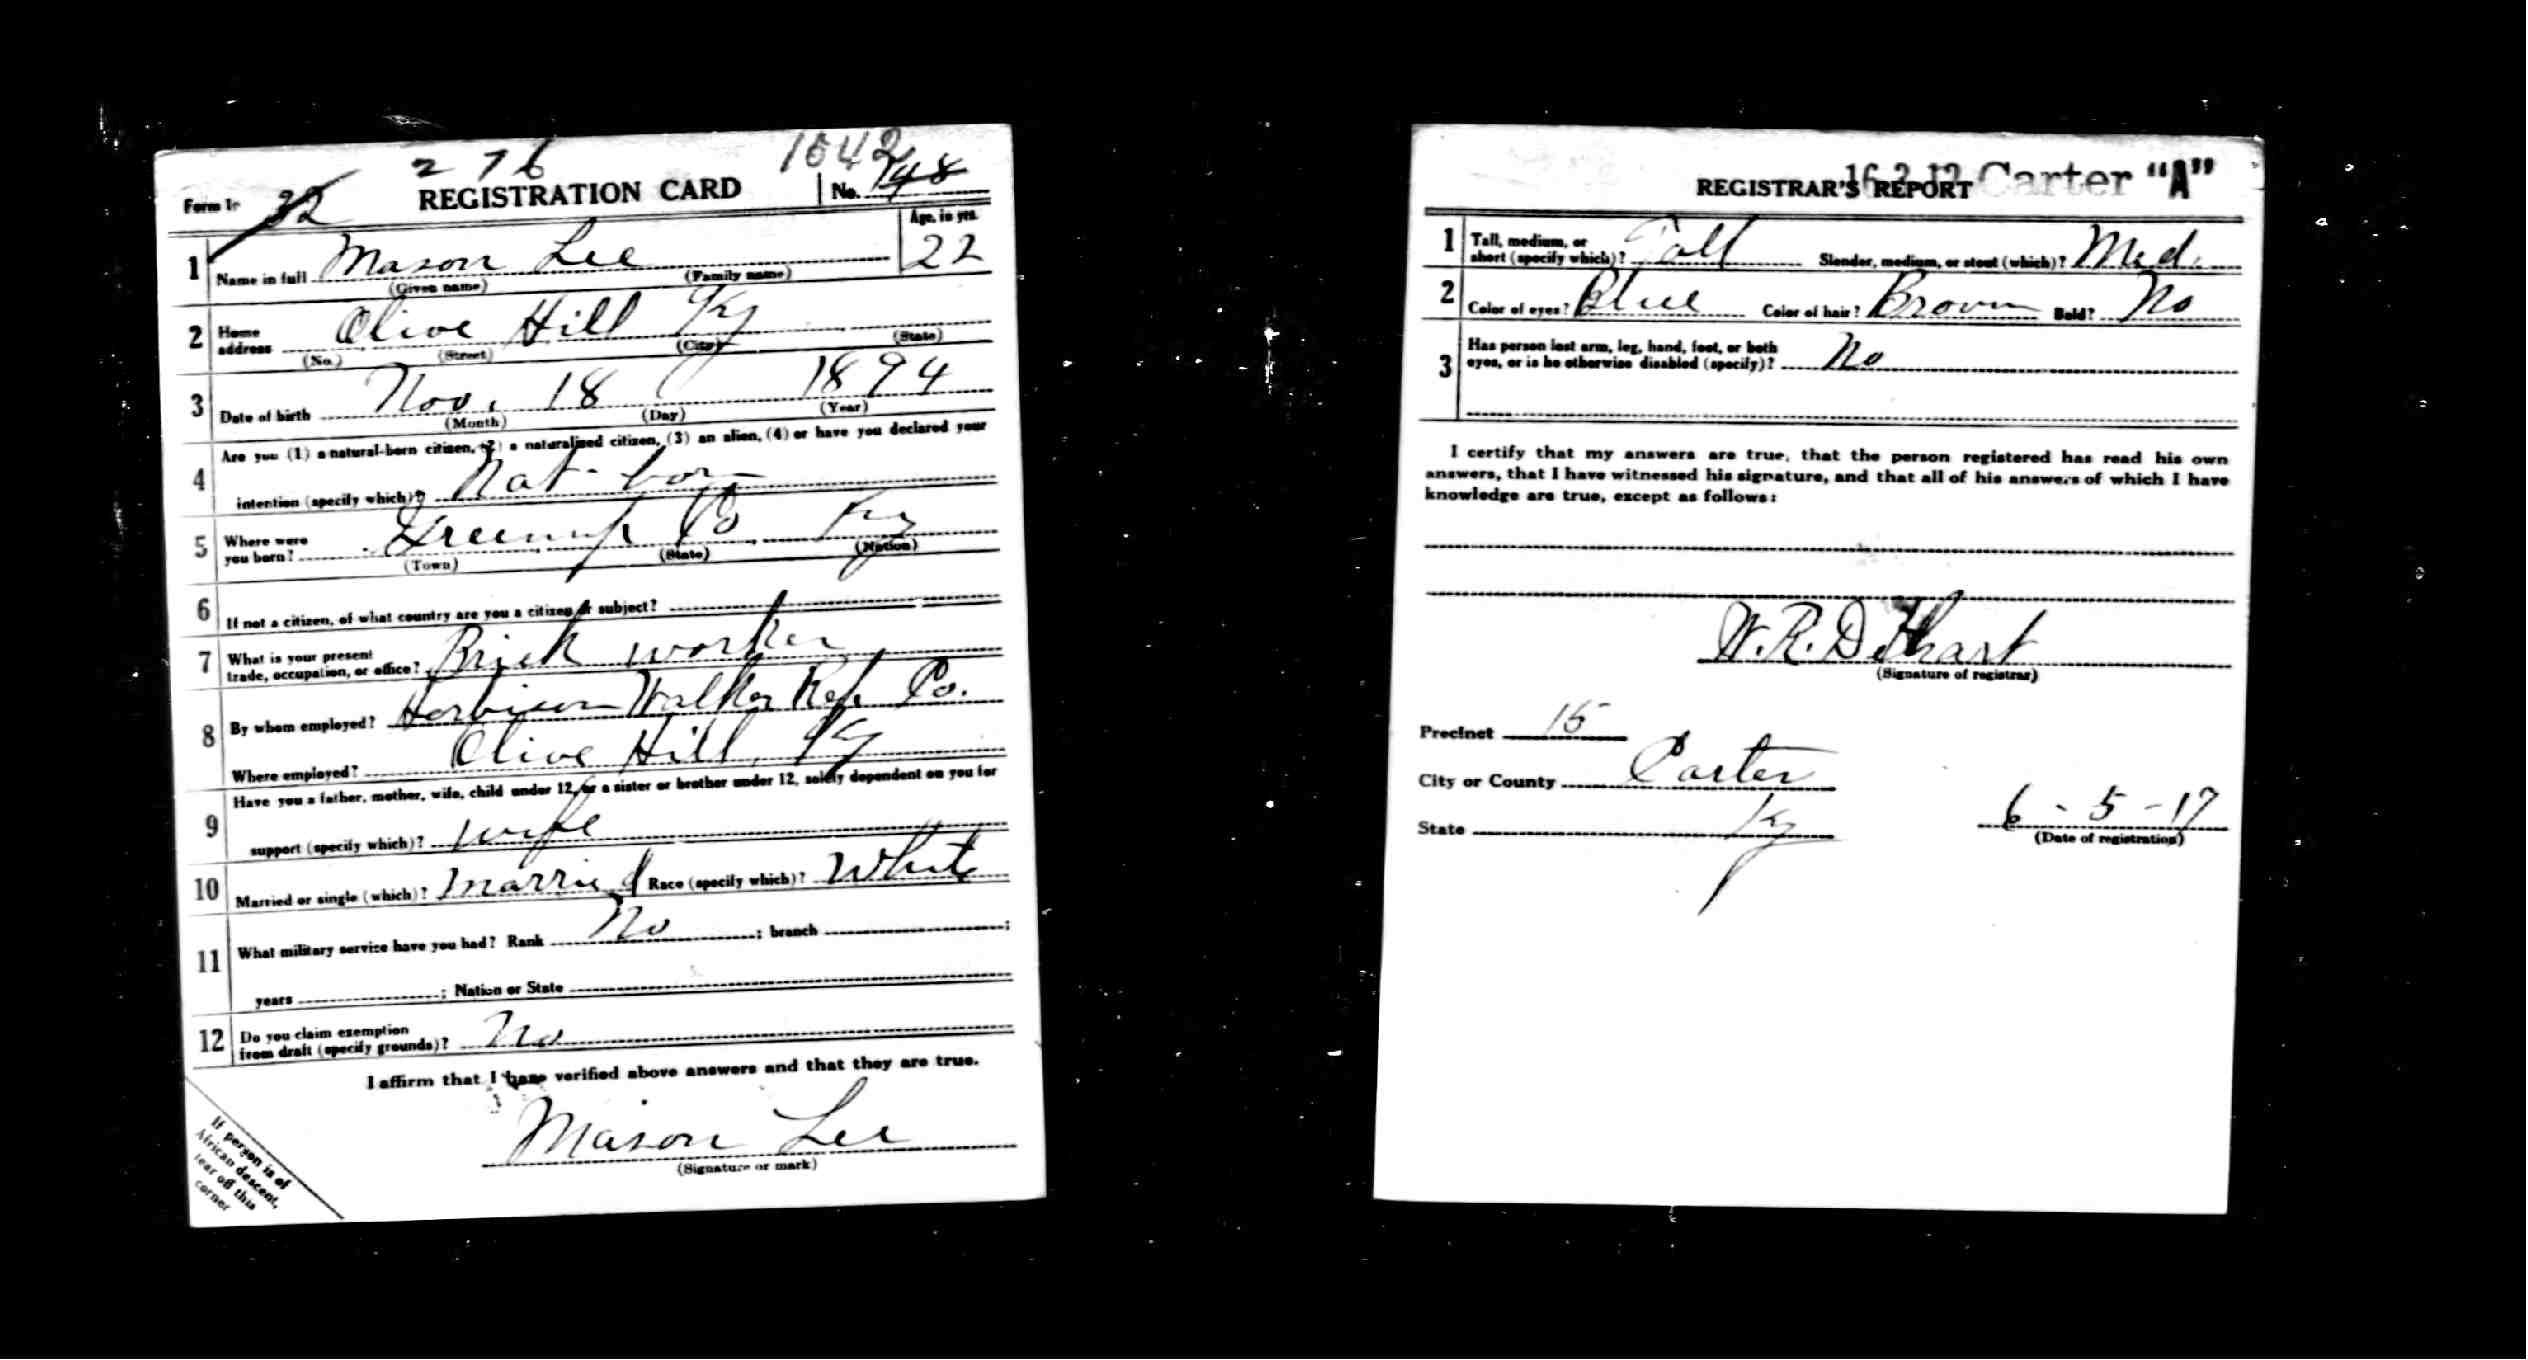 276 1642
Form 1 32 REGISTRATION CARD No. 748
Age, in yrs.
1 Name in full Mason Lee 22
(Given name) (Family name)
2 Home address Olive Hill Ky
(No.) (Street) (City) (State)
3 Date of birth Nov. 18 1894
(Month) (Day) (Year)
4 Are you (1) a natural-born citizen, (2) a naturalized citizen, (3) an alien, (4) or have you declared your
intention (specify which)? Nat born
5 Where were you born? Greenup Co Ky
(Town) (State) (Nation)
6 If not a citizen, of what country are you a citizen or subject?
7 What is your present trade, occupation, or office? Brick worker
8 By whom employed? Harbison Walker Ref. Co.
Where employed? Olive Hill, Ky
9 Have you a father, mother, wife, child under 12, or a sister or brother under 12, solely dependent on you for
support (specify which)? wife
10 Married or single (which)? Married Race (specify which)? White
11 What military service have you had? Rank No ; branch ;
years ; Nation or State
12 Do you claim exemption from draft (specify grounds)? No
I affirm that I have verified above answers and that they are true.
Mason Lee
(Signature or mark)
If person is of
African descent,
tear off this
corner
REGISTRAR'S REPORT 16-2-12 Carter "A"
1 Tall, medium, or short (specify which)? Tall Slender, medium, or stout (which)? Med.
2 Color of eyes? Blue Color of hair? Brown Bald? No
3 Has person lost arm, leg, hand, foot, or both
eyes, or is he otherwise disabled (specify)? No
I certify that my answers are true, that the person registered has read his own
answers, that I have witnessed his signature, and that all of his answers of which I have
knowledge are true, except as follows:
W. R. DeHart
(Signature of registrar)
Precinct 15
City or County Carter
State Ky 6-5-17
(Date of registration)